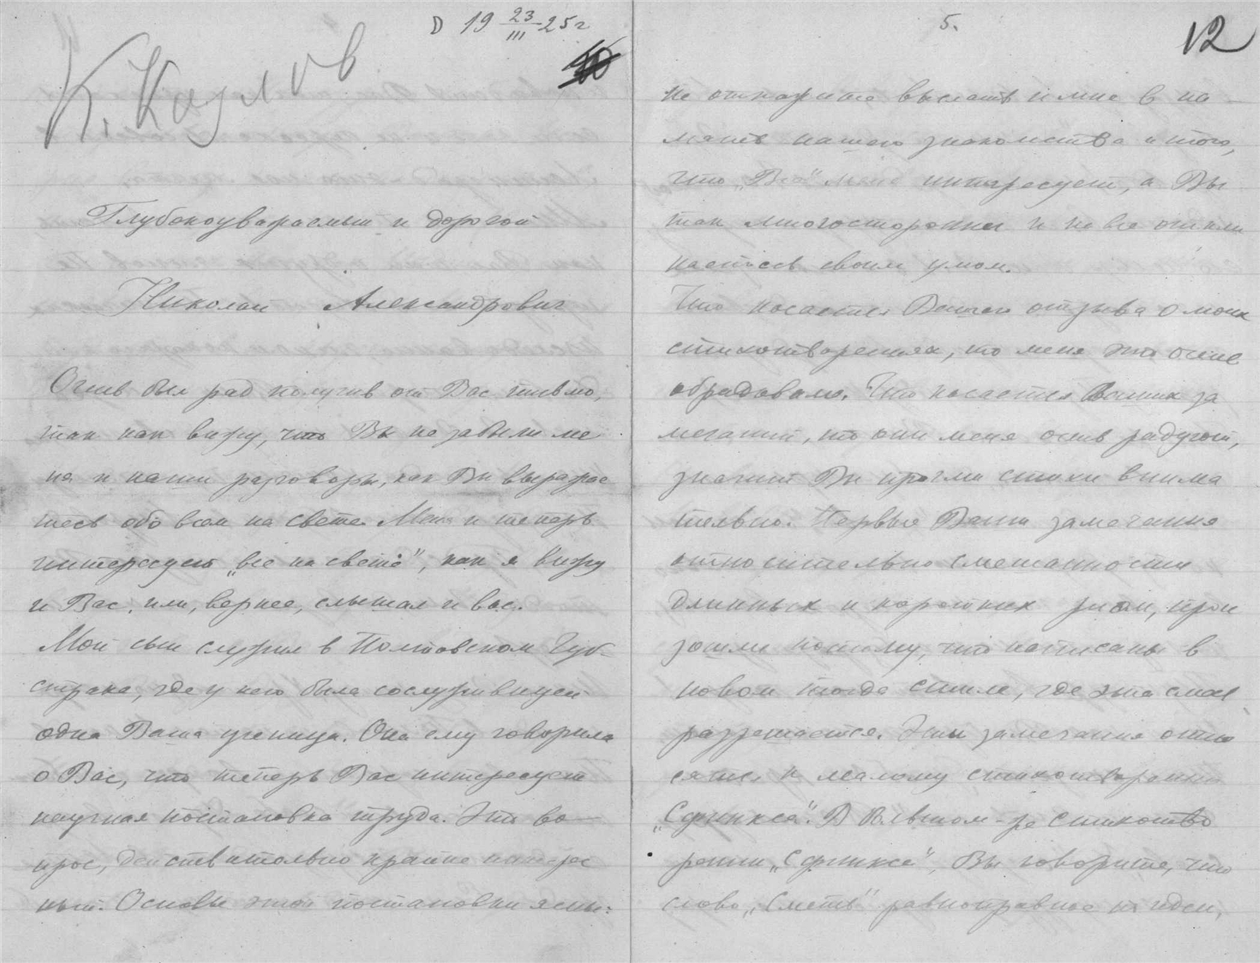 19 23/III 25 г
Глубокоуважаемый и дорогой
Николай Александрович
Очень был рад получив от Вас письмо,
так как вижу, что Вы не забыли ме
ня и наши разговоры, как Вы выражае
тесь обо всем на свете. Меня и теперь
интересует „все на свете", как я вижу
и Вас, или, вернее, слышал и вас.
Мой сын служил в Полтавском Губ-
страхе, где у него была сослуживицей
одна Ваша ученица. Она ему говорила
о Вас, что теперь Вас интересует
научная постановка труда. Это во-
прос, действительно крайне интерес
ный. Основы этой постановки ясны:
5.
12
не откажите выслать и мне в па-
мять нашего знакомства и того,
что „Все" меня интересует, а Вы
так многосторонни и на все откли
каетесь своим умом.
Что касается Вашего отзыва о моих
стихотворениях, то меня это очень
обрадовало. Что касается Ваших за
мечаний, то они меня очень радуют,
значит Вы прочли стихи внима
тельно. Первые Ваши замечания
относительно смешанности
длинных и коротких рифм, прои
зошли потому, что написаны в
новом тогда стиле, где это смес
разрешается. Эти замечания отно
сятся к малому стихотворению
„Сфинксе". В большом-же стихотво
рении „Сфинксе", Вы говорите, что
слово „Сметь" равноправное